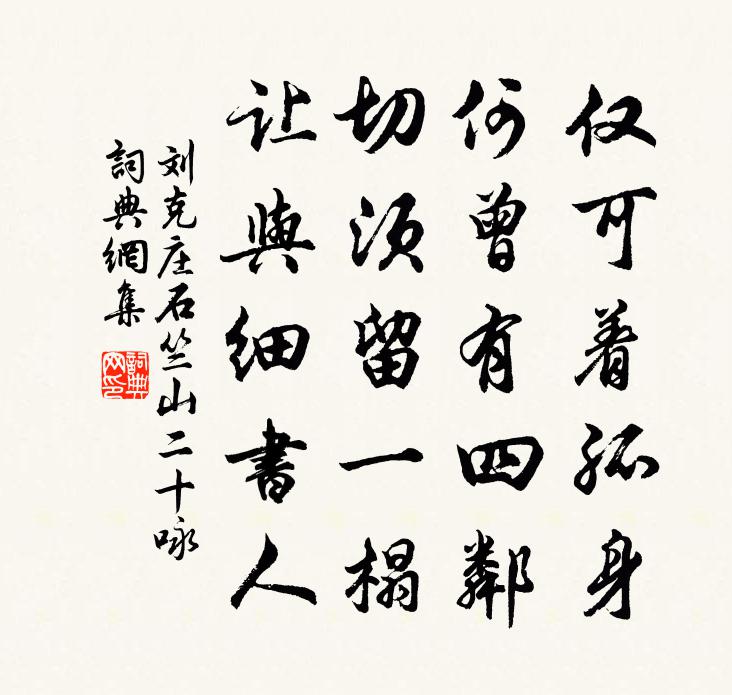 仅可着孤身
何曾有四鄰
切须留一榻
让與细書人
刘克庄石竺山二十咏
詞典網集
詞典網印